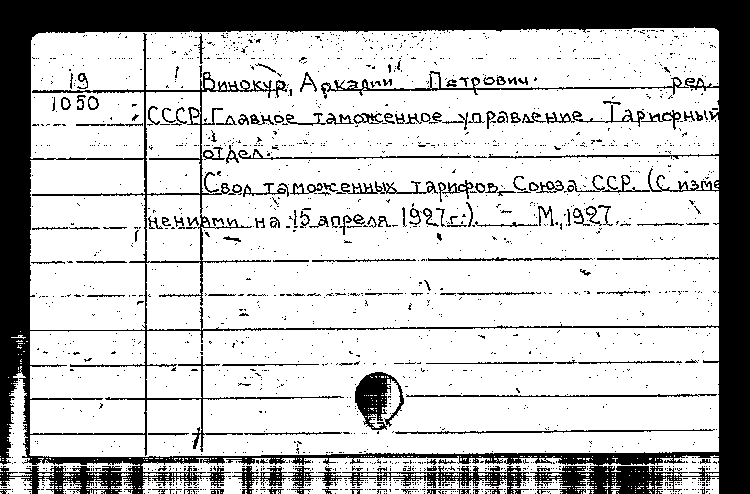 19
1050
Винокур, Аркадий Петрович. ред.
СССР. Главное таможенное управление. Тарифный
отдел.
Свод таможенных тарифов Союза ССР. (С изме
нениями на 15 апреля 1927 г.). – М., 1927.